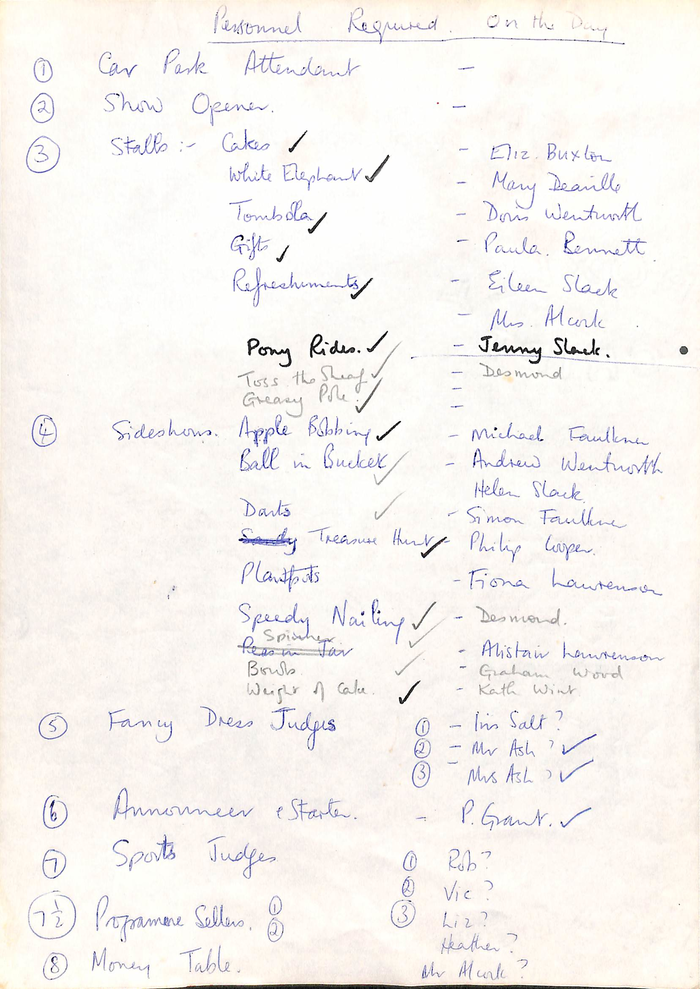 Personnel Required. On the Day
① Car Park Attendant -
② Show Opener. -
③ Stalls :- Cakes ✓ - Eliz. Buxton
White Elephant ✓ - Mary Deaville
Tombola ✓ - Doris Wentworth
Gifts ✓ - Paula. Bennett.
Refreshments ✓ - Eileen Slack
Mrs. Alcock
Pony Rides. ✓ - Jenny Slack.
Toss the Sheaf ✓ - Desmond
Greasy Pole. ✓ -
④ Sideshows. Apple Bobbing ✓ - Michael Faulkner
Ball in Bucket ✓ - Andrew Wentworth
Helen Slack
Darts ✓ - Simon Faulkner
Sandy Treasure Hunt ✓ - Philip Cooper.
Plantpots - Fiona Lawrenson
Speedy Nailing ✓ - Desmond.
Spinner
Peas in Jar ✓ - Alistair Lawrenson
Bowls. ✓ - Graham Wood
Weight of Cake. ✓ - Kath Wint
⑤ Fancy Dress Judges ① - Iris Salt?
② - Mr Ash? ✓
③ - Mrs Ash? ✓
⑥ Announcer & Starter. - P. Grant. ✓
⑦ Sports Judges ① Rob?
② Vic?
7½ Programme Sellers. ① ② ③ Liz?
Heather?
⑧ Money Table. Mr Alcock?